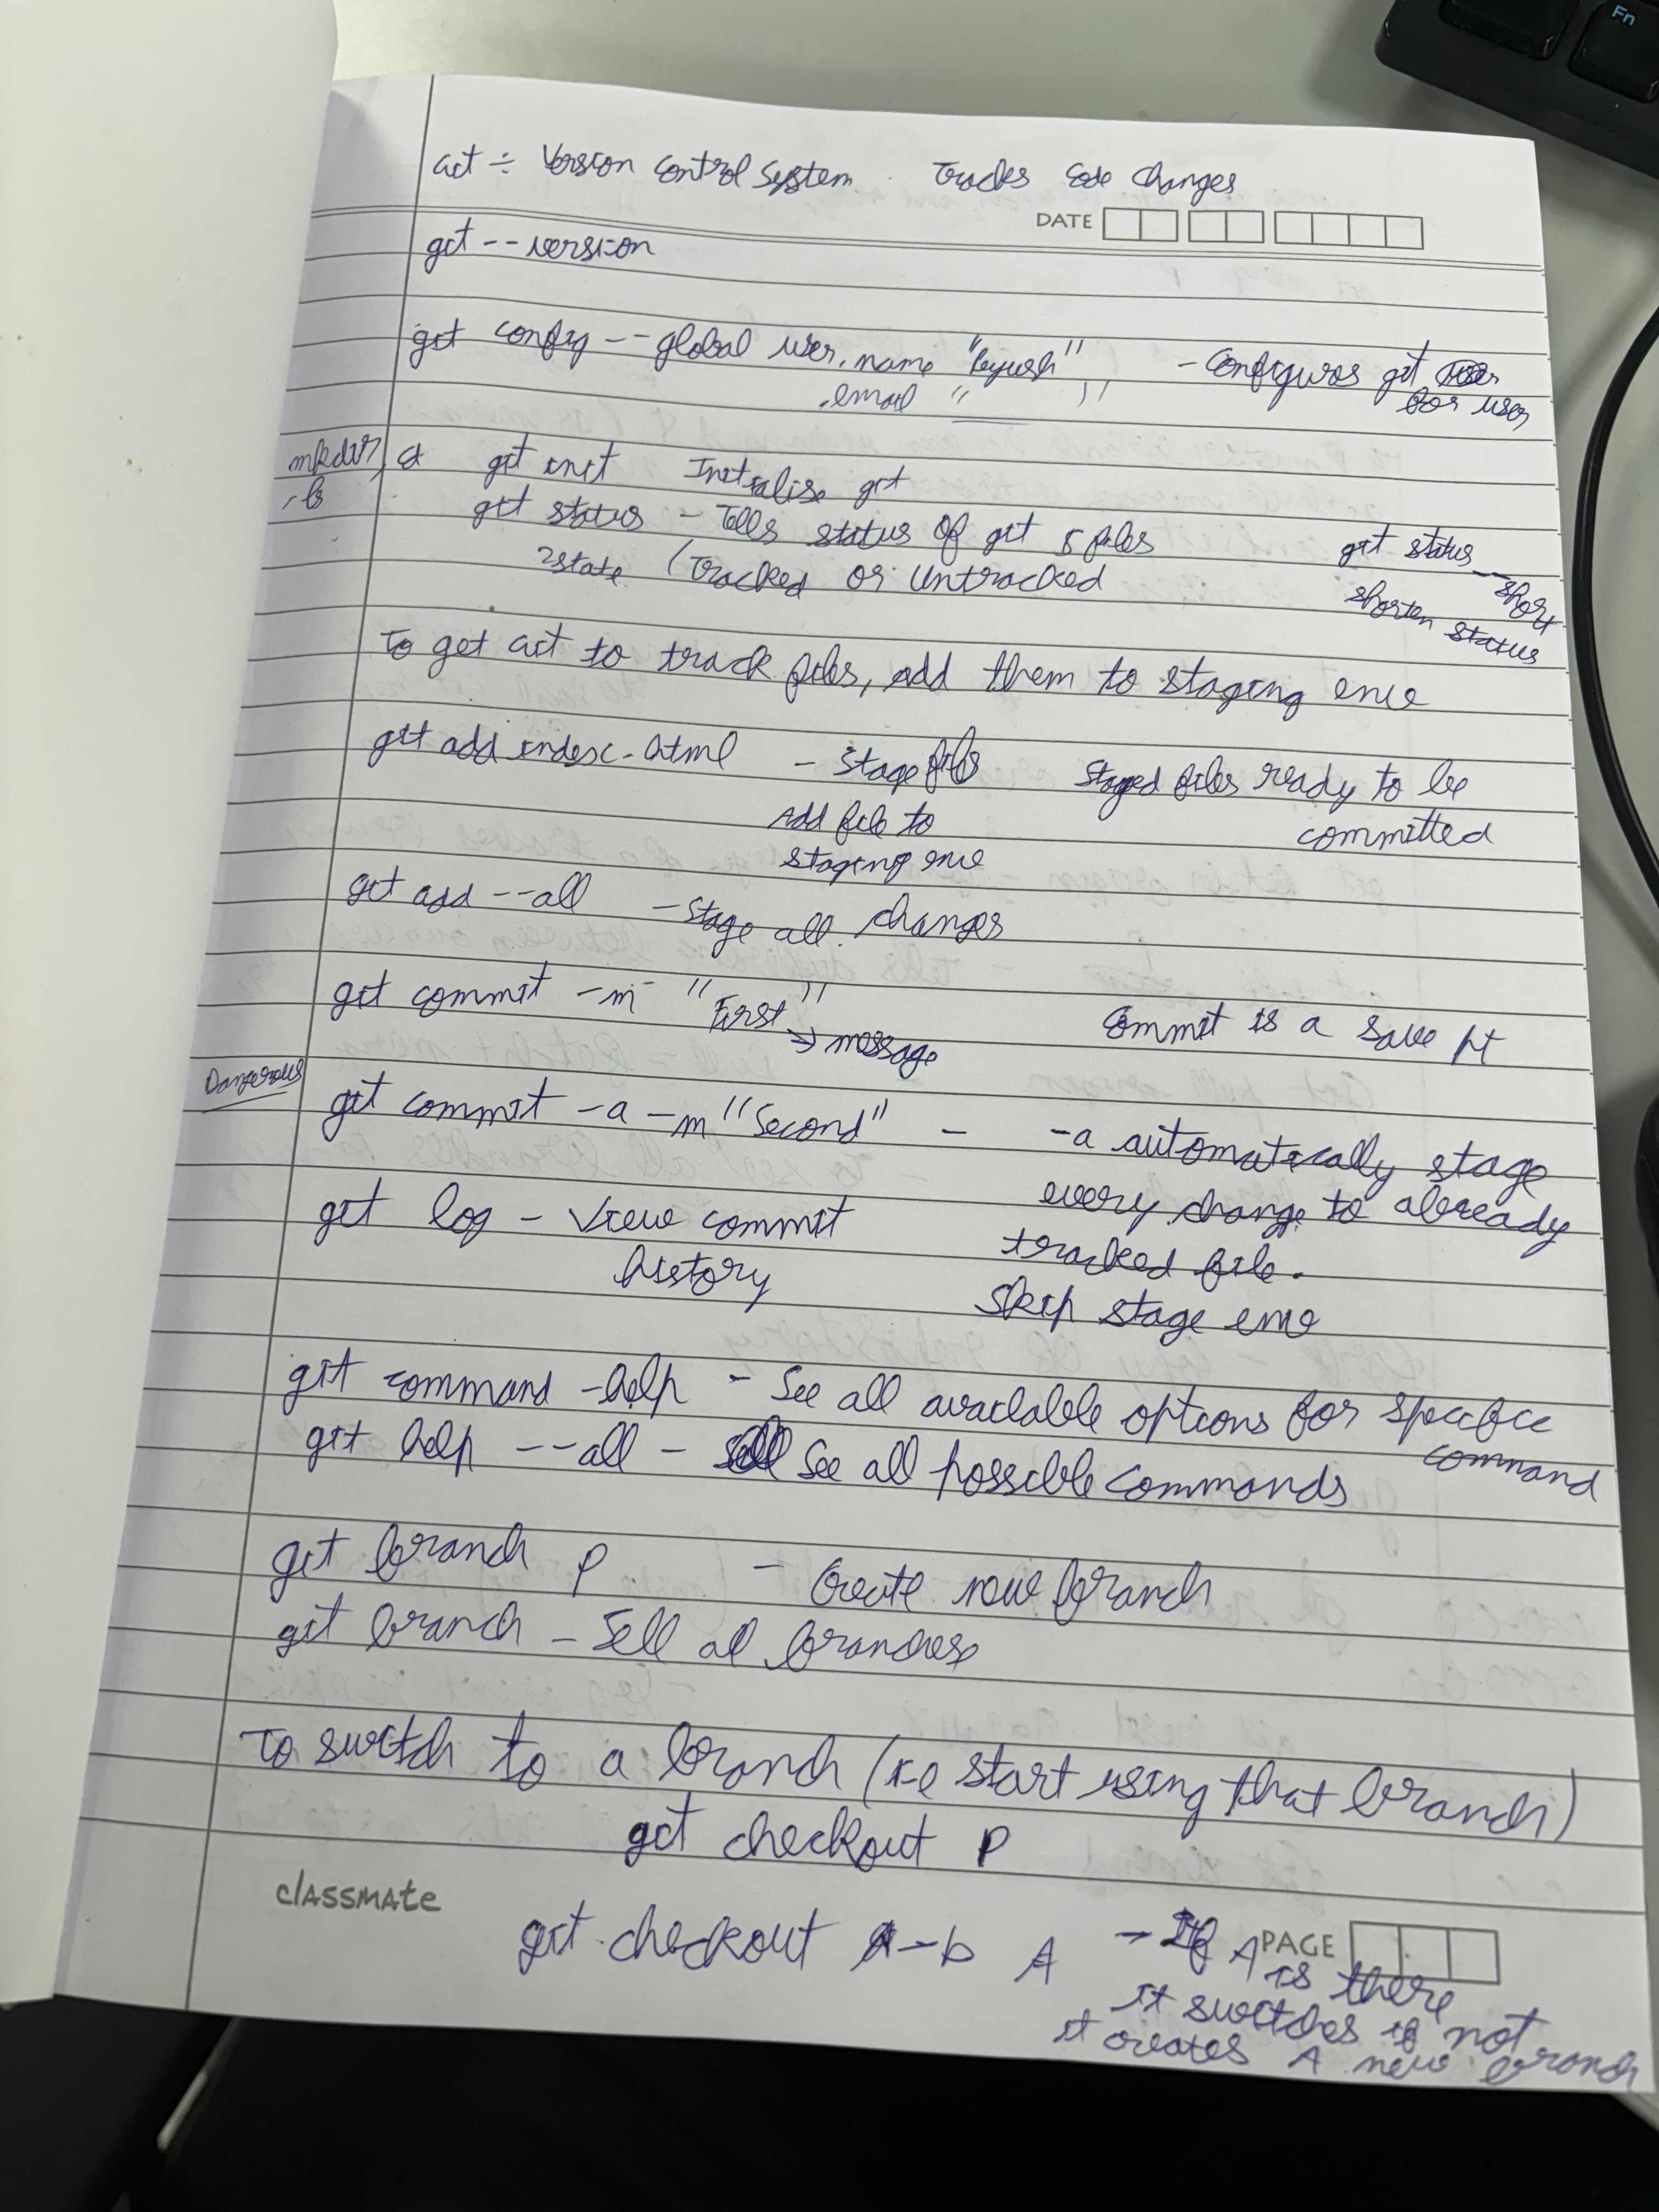 Git ÷ Version Control System. Tracks Code Changes
DATE
git -- version
git config -- global user.name "Piyush" - Configures git for user
.email " "
mkdir, cd git init Initialise git
- ls
git status - Tells status of git & files git status --short
state (Tracked or Untracked shorten status
To get Git to track files, add them to staging env
git add index.html - Stage files Staged files ready to be
Add file to committed
staging env
git add --all - Stage all changes
git commit -m "First" Commit is a save pt
→ message
Dangerous
git commit -a -m "Second" - -a automatically stage
every change to already
git log - View commit tracked file.
history Skip stage env
git command -help - See all available options for specific
command
git help --all - See all possible commands
git branch P - Create new branch
git branch - Tell all branches
To switch to a branch (i-e start using that branch)
git checkout P
classmate
PAGE
git checkout -b A - If A is there
it switches if not
it creates A new branch
Fn